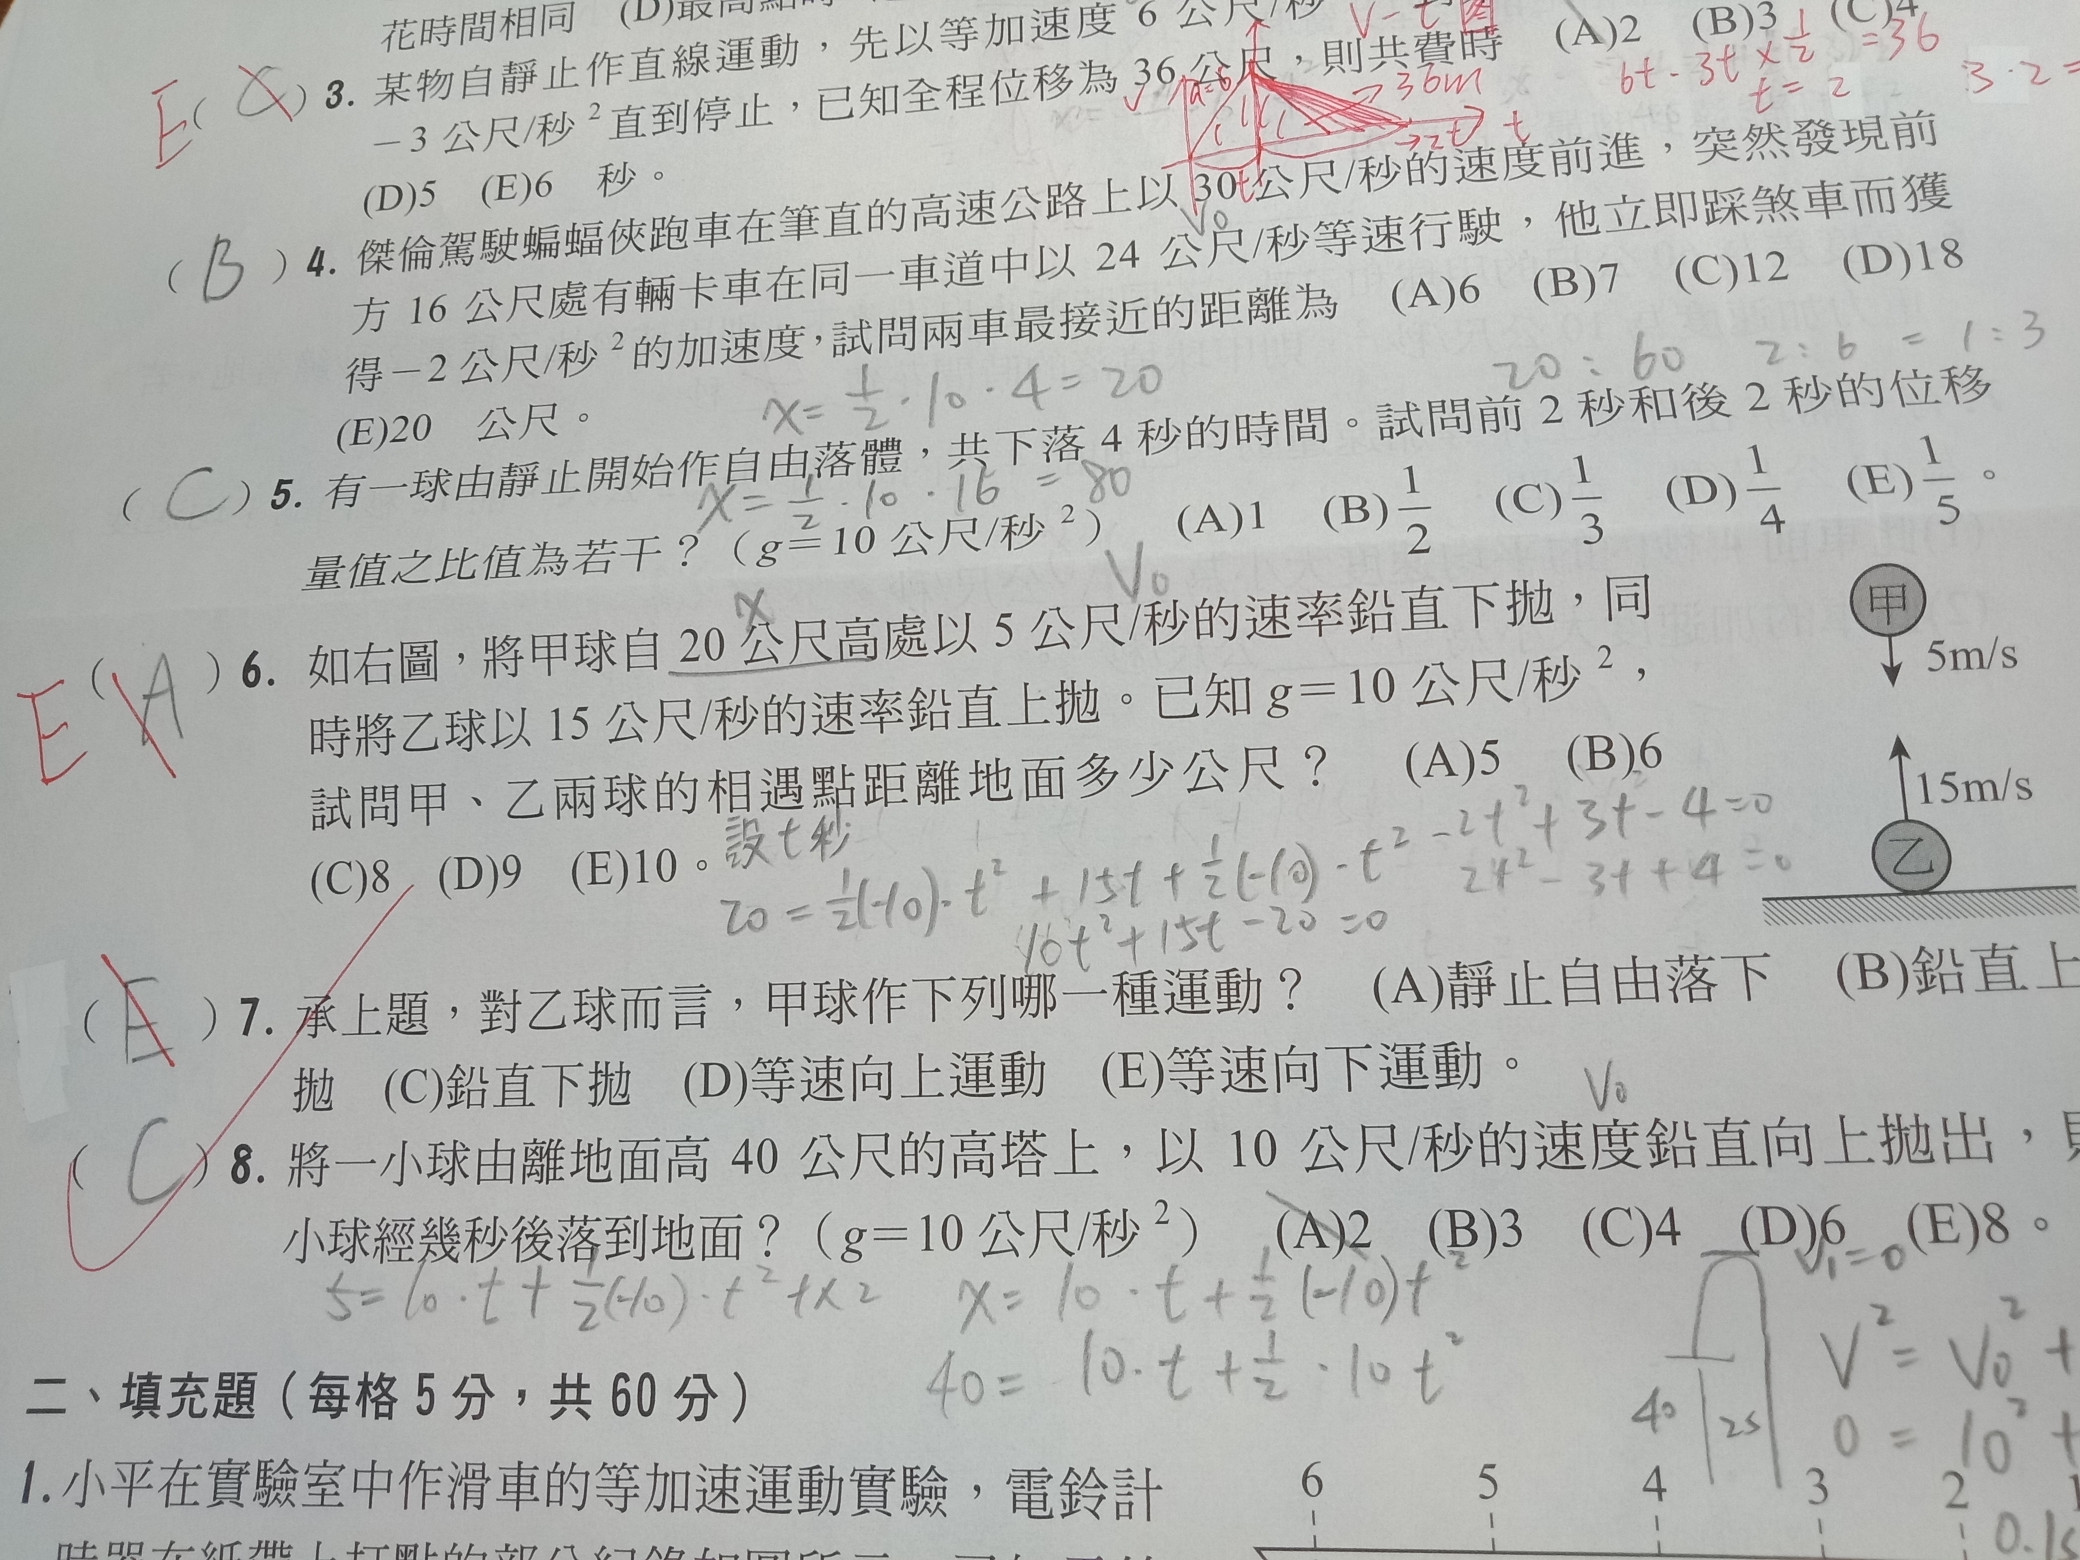 花時間相同 (D)最高點時
(A)2 (B)3 (C)4
V-t圖
6t·3t×1/2=36
t=2
3·2=
E(C)3. 某物自靜止作直線運動，先以等加速度 6 公尺/秒
-3 公尺/秒²直到停止，已知全程位移為 36 公尺，則共費時
(D)5 (E)6 秒。
V
a=6
36m
t
2t
t
(B)4. 傑倫駕駛蝙蝠俠跑車在筆直的高速公路上以 30 公尺/秒的速度前進，突然發現前
V₀
方 16 公尺處有輛卡車在同一車道中以 24 公尺/秒等速行駛，他立即踩煞車而獲
得-2 公尺/秒²的加速度，試問兩車最接近的距離為 (A)6 (B)7 (C)12 (D)18
(E)20 公尺。
x=1/2·10·4=20
20:60 2:6=1:3
(C)5. 有一球由靜止開始作自由落體，共下落 4 秒的時間。試問前 2 秒和後 2 秒的位移
x=1/2·10·16=80
量值之比值為若干？（g=10 公尺/秒²） (A)1 (B)1/2 (C)1/3 (D)1/4 (E)1/5。
x
V₀
E(A)6. 如右圖，將甲球自 20 公尺高處以 5 公尺/秒的速率鉛直下拋，同
時將乙球以 15 公尺/秒的速率鉛直上拋。已知 g=10 公尺/秒²，
試問甲、乙兩球的相遇點距離地面多少公尺？ (A)5 (B)6
(C)8 (D)9 (E)10。
甲
5m/s
15m/s
乙
設t秒
20=1/2(-10)·t²+15t+1/2(-10)·t²
10t²+15t-20=0
-2t²+3t-4=0
2t²-3t+4=0
(E)7. 承上題，對乙球而言，甲球作下列哪一種運動？ (A)靜止自由落下 (B)鉛直上
拋 (C)鉛直下拋 (D)等速向上運動 (E)等速向下運動。
V₀
(C)8. 將一小球由離地面高 40 公尺的高塔上，以 10 公尺/秒的速度鉛直向上拋出，
小球經幾秒後落到地面？（g=10 公尺/秒²） (A)2 (B)3 (C)4 (D)6 (E)8。
5=10·t+1/2(-10)·t²+x2
x=10·t+1/2(-10)t²
40=10·t+1/2·10t²
V₁=0
V²=V₀²+
0=10²+
40
25
二、填充題（每格 5 分，共 60 分）
1. 小平在實驗室中作滑車的等加速運動實驗，電鈴計
6 5 4 3 2 1
0.1s